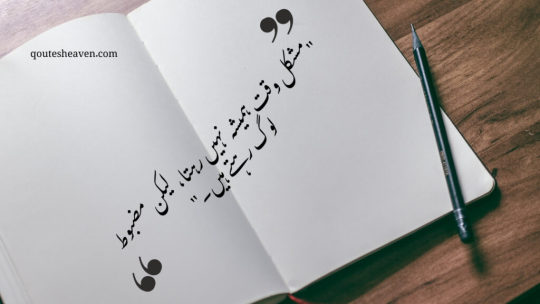 qoutesheaven.com
"مشکل وقت ہمیشہ نہیں رہتا، لیکن مضبوط
لوگ رہتے ہیں۔"